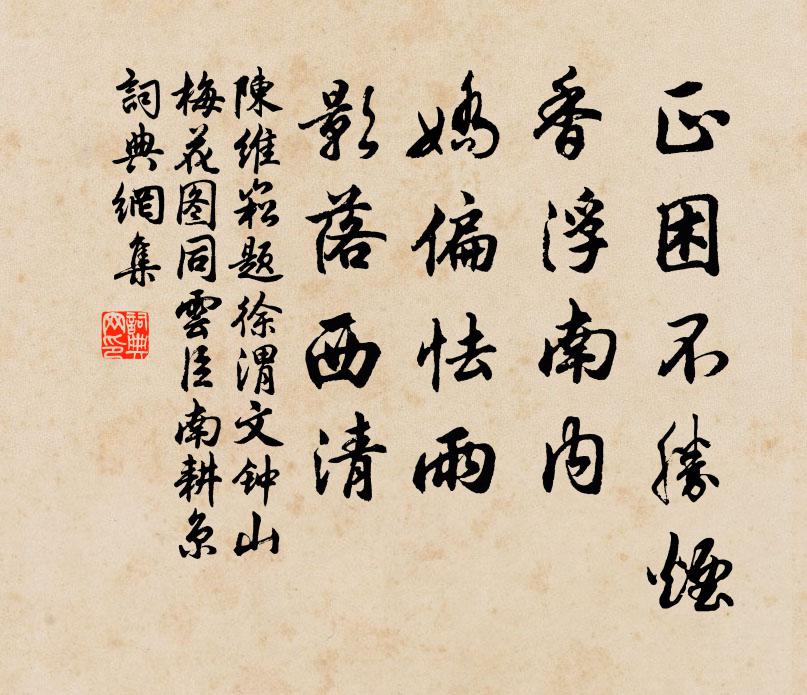 正困不勝煙
香浮南内
嬌偏怯雨
影落西清
陳維崧题徐渭文钟山
梅花图同雲臣南耕京
詞典網集
詞典
网印